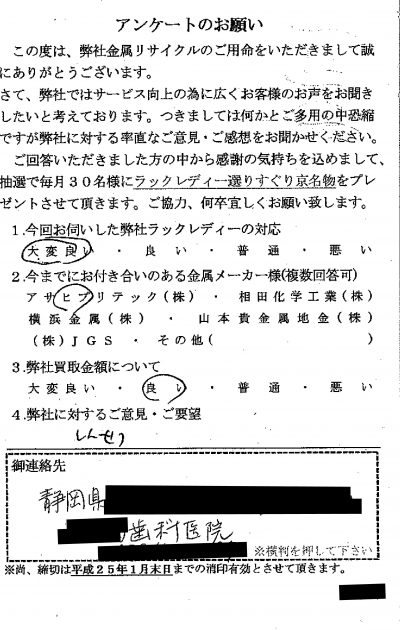 アンケートのお願い
この度は、弊社金属リサイクルのご用命をいただきまして誠
にありがとうございます。
さて、弊社ではサービス向上の為に広くお客様のお声をお聞き
したいと考えております。つきましては何かとご多用の中恐縮
ですが弊社に対する率直なご意見・ご感想をお聞かせください。
ご回答いただきました方の中から感謝の気持ちを込めまして、
抽選で毎月30名様にラックレディー選りすぐり京名物をプレ
ゼントさせて頂きます。ご協力、何卒宜しくお願い致します。
1.今回お伺いした弊社ラックレディーの対応
大変良い ・ 良い ・ 普通 ・ 悪い
2.今までにお付き合いのある金属メーカー様(複数回答可)
アサヒプリテック(株) ・ 相田化学工業(株)
横浜金属(株) ・ 山本貴金属地金(株)
(株)JGS ・ その他( )
3.弊社買取金額について
大変良い ・ 良い ・ 普通 ・ 悪い
4.弊社に対するご意見・ご要望
しんせつ
御連絡先
静岡県
歯科医院
※横判を押して下さい
※尚、締切は平成25年1月末日までの消印有効とさせて頂きます。